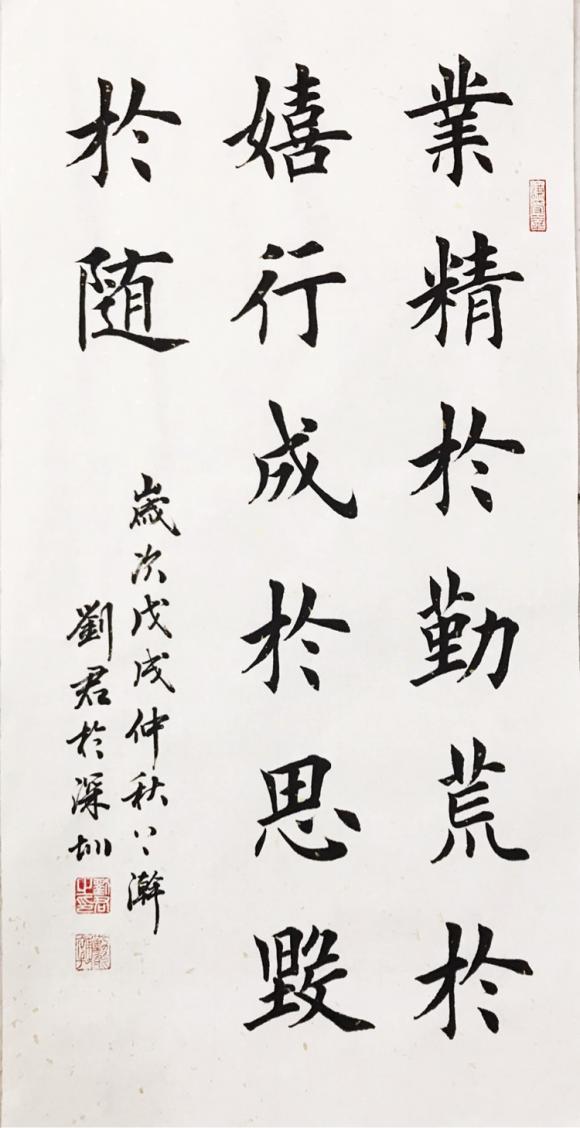 業精於勤荒於
嬉行成於思毀
於随
歲次戊戌仲秋澣
劉君於深圳
劉君之印